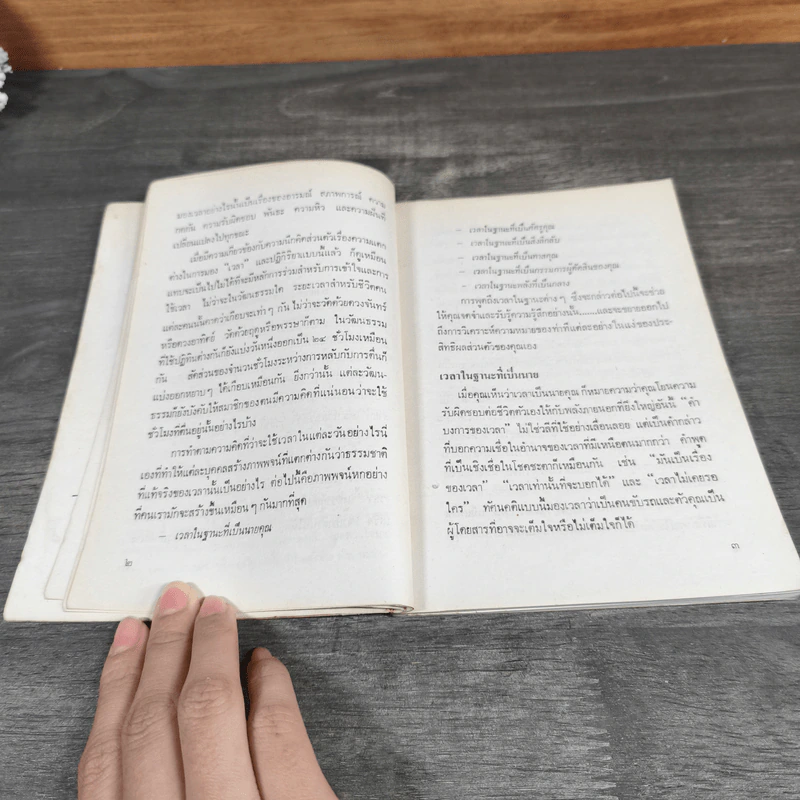 มองเวลาอย่างไรนั้นเป็นเรื่องของอารมณ์ สภาพการณ์ ความ
กดดัน ความรับผิดชอบ พันธะ ความหิว และความผันที่
เปลี่ยนแปลงไปทุกขณะ
เมื่อมีความเกี่ยวข้องกับความนึกคิดส่วนตัวเรื่องความแตก
ต่างในการมอง "เวลา" และปฏิกิริยาแบบนี้แล้ว ก็ดูเหมือน
แทบจะเป็นไปไม่ได้ที่จะมีหลักการร่วมสำหรับการเข้าใจและการ
ใช้เวลา ไม่ว่าจะในวัฒนธรรมใด ระยะเวลาสำหรับชีวิตคน
แต่ละคนนั้นคาดว่าเกือบจะเท่า ๆ กัน ไม่ว่าจะวัดด้วยดวงจันทร์
หรือดวงอาทิตย์ วัดด้วยฤดูหรือพรรษาก็ตาม ในวัฒนธรรม
ที่ใช้ปฏิทินต่างกันก็ยังแบ่งวันหนึ่งออกเป็น ๒๔ ชั่วโมงเหมือน
กัน สัดส่วนของจำนวนชั่วโมงระหว่างการหลับกับการตื่นก็
แบ่งออกหยาบๆ ได้เกือบเหมือนกัน ยิ่งกว่านั้น แต่ละวัฒน-
ธรรมก็ยังบังคับให้สมาชิกของตนมีความคิดที่แน่นอนว่าจะใช้
ชั่วโมงที่ตื่นอยู่นั้นอย่างไรบ้าง
การทำตามความคิดที่ว่าจะใช้เวลาในแต่ละวันอย่างไรนี่
เองที่ทำให้แต่ละบุคคลสร้างภาพพจน์ที่แตกต่างกันว่าธรรมชาติ
ที่แท้จริงของเวลานั้นเป็นอย่างไร ต่อไปนี้คือภาพพจน์หกอย่าง
ที่คนเรามักจะสร้างขึ้นเหมือน ๆ กันมากที่สุด
– เวลาในฐานะที่เป็นนายคุณ
๒
– เวลาในฐานะที่เป็นศัตรูคุณ
– เวลาในฐานะที่เป็นสิ่งลึกลับ
– เวลาในฐานะที่เป็นทาสคุณ
– เวลาในฐานะที่เป็นกรรมการผู้ตัดสินของคุณ
– เวลาในฐานะพลังที่เป็นกลาง
การพูดถึงเวลาในฐานะต่าง ๆ ซึ่งจะกล่าวต่อไปนี้จะช่วย
ให้คุณจดจำและรับรู้ความรู้สึกอย่างนั้น......และจะขยายออกไป
ถึงการวิเคราะห์ความหมายของท่าทีแต่ละอย่างในแง่ของประ-
สิทธิผลส่วนตัวของคุณเอง
เวลาในฐานะที่เป็นนาย
เมื่อคุณเห็นว่าเวลาเป็นนายคุณ ก็หมายความว่าคุณโอนความ
รับผิดชอบต่อชีวิตตัวเองให้กับพลังภายนอกที่ยิ่งใหญ่อันนี้ "คำ
บงการของเวลา" ไม่ใช่วลีที่ใช้อย่างเลื่อนลอย แต่เป็นคำกล่าว
ที่บอกความเชื่อในอำนาจของเวลาที่มีเหนือตนมากกว่า คำพูด
ที่เป็นเชิงเชื่อในโชคชะตาก็เหมือนกัน เช่น "มันเป็นเรื่อง
ของเวลา" "เวลาเท่านั้นที่จะบอกได้" และ "เวลาไม่เคยรอ
ใคร" ทัศนคติแบบนี้มองเวลาว่าเป็นคนขับรถและตัวคุณเป็น
ผู้โดยสารที่อาจจะเต็มใจหรือไม่เต็มใจก็ได้
๓